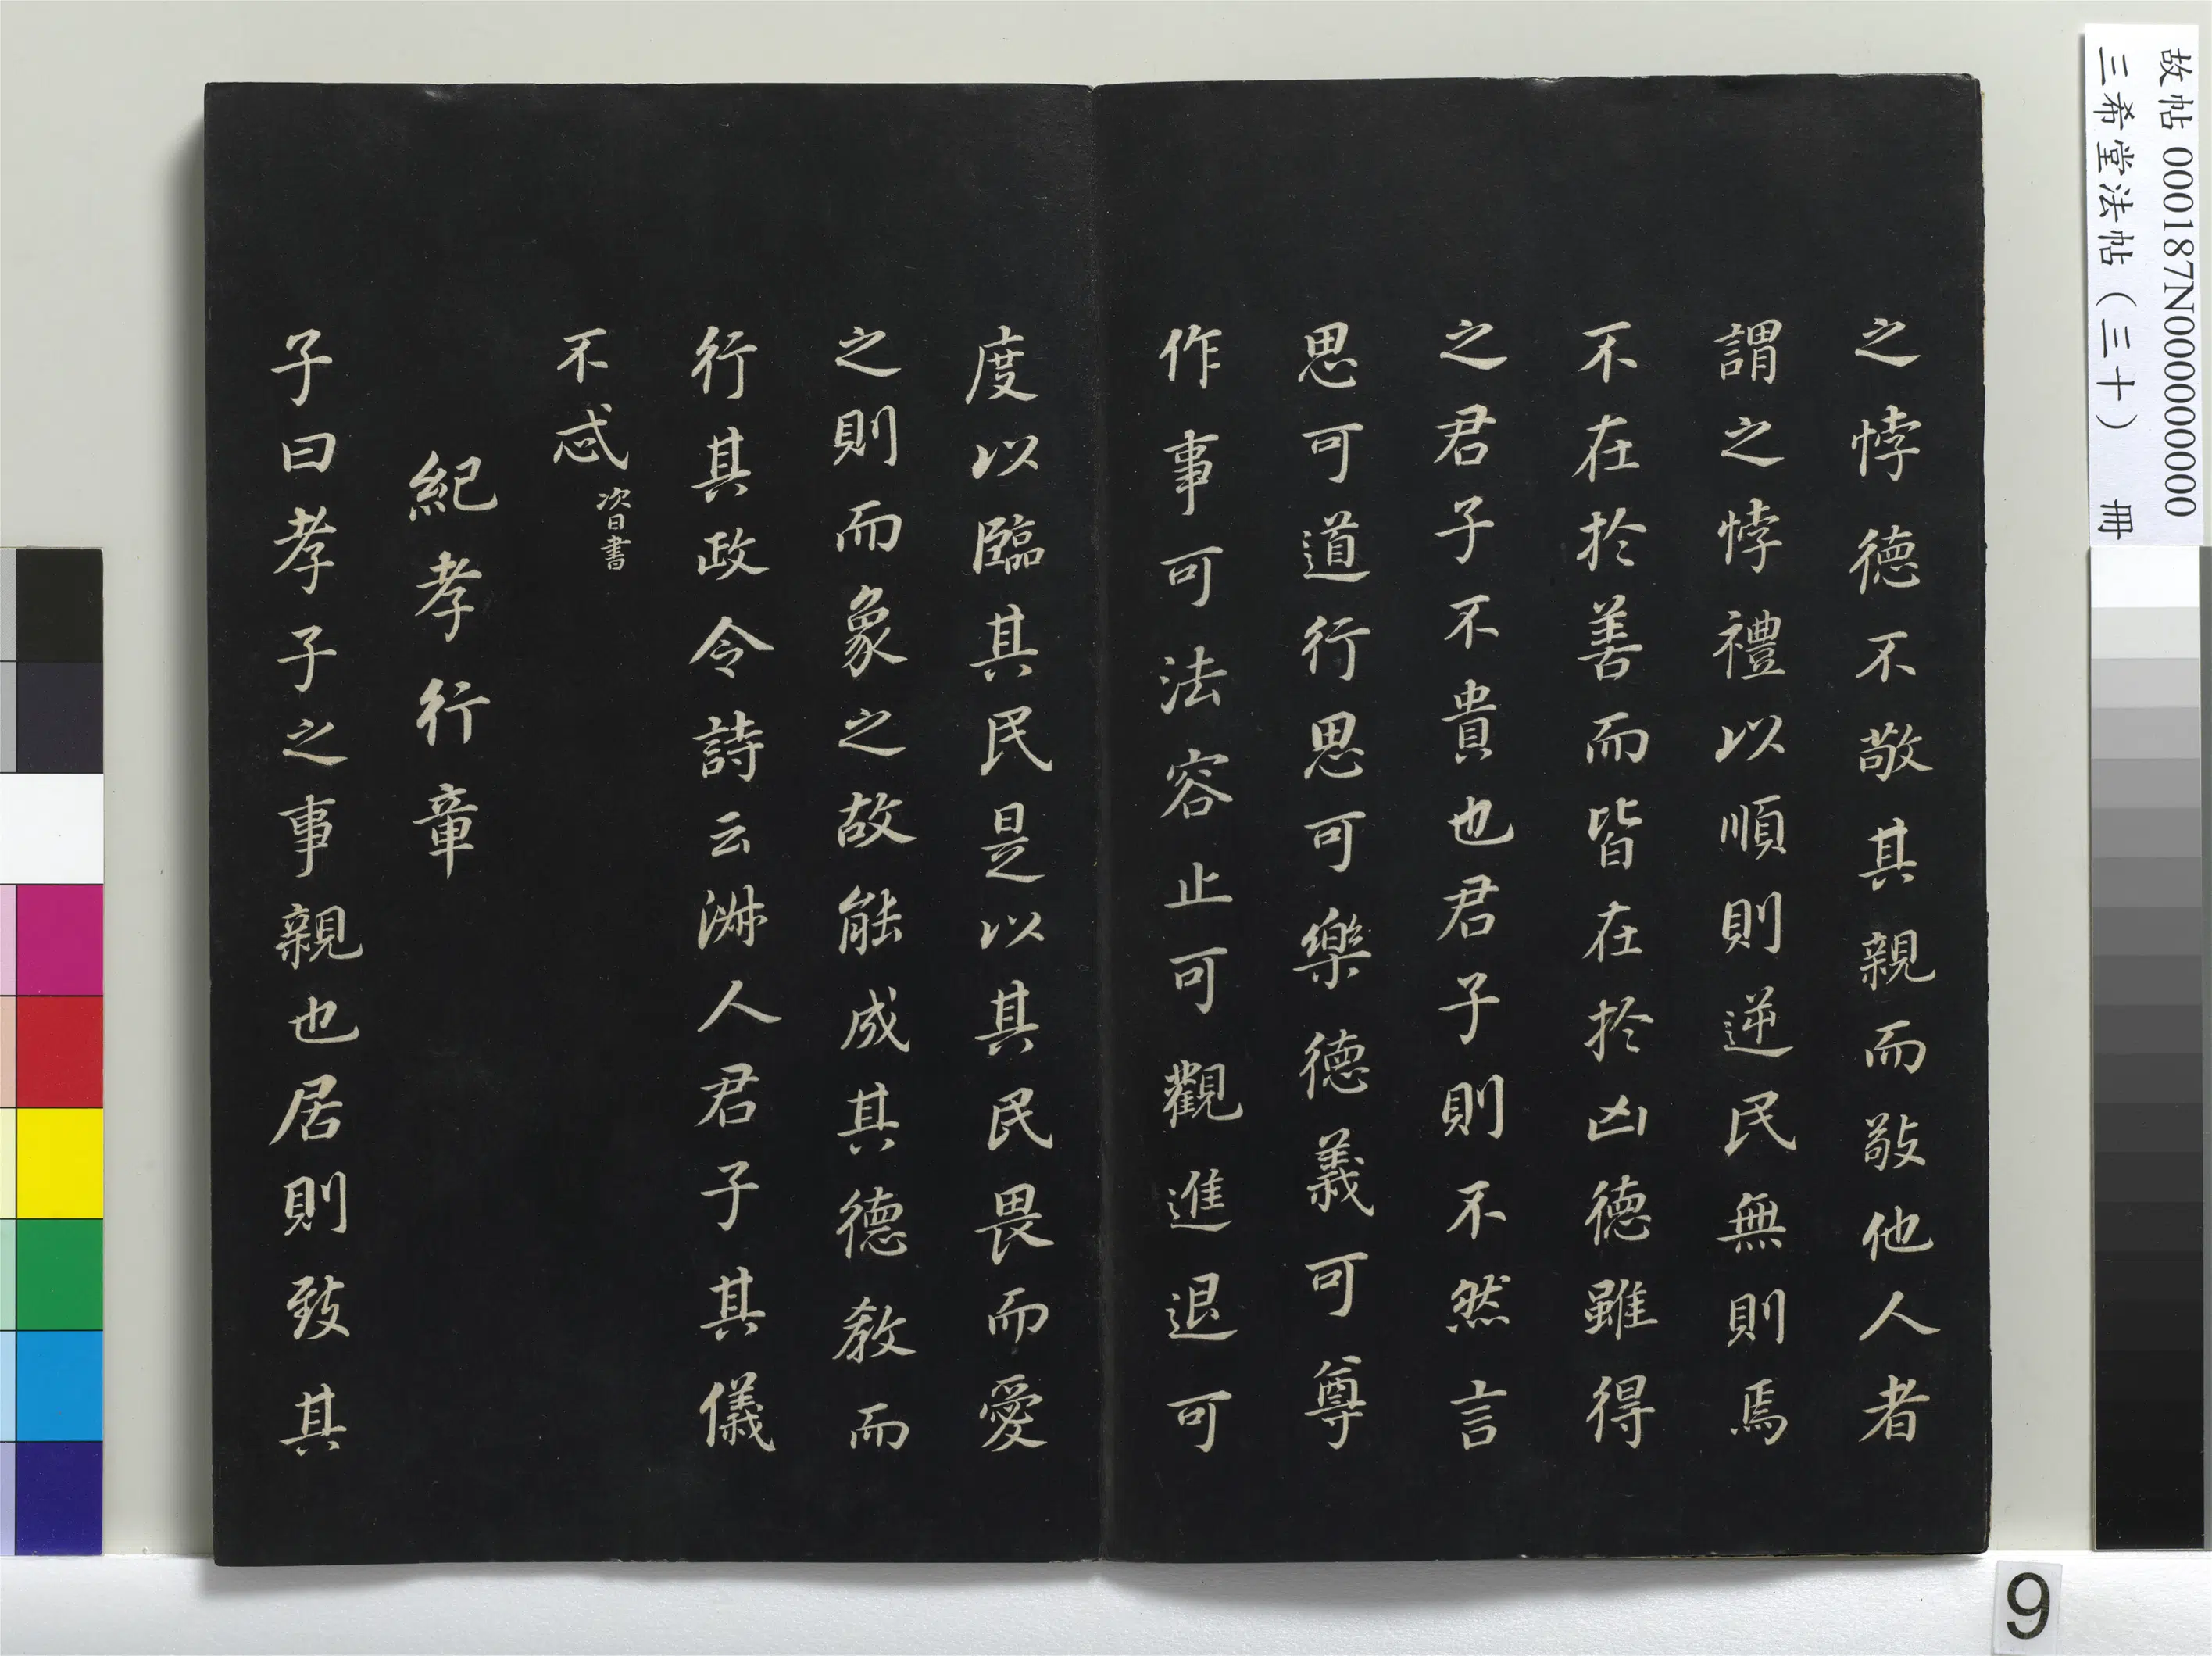 之悖德不敬其親而敬他人者
謂之悖禮以順則逆民無則焉
不在於善而皆在於凶德雖得
之君子不貴也君子則不然言
思可道行思可樂德義可尊
作事可法容止可觀進退可
度以臨其民是以其民畏而愛
之則而象之故能成其德教而
行其政令詩云淑人君子其儀
不忒
次日書
紀孝行章
子曰孝子之事親也居則致其
故帖 000187N000000000
三希堂法帖（三十） 冊
9